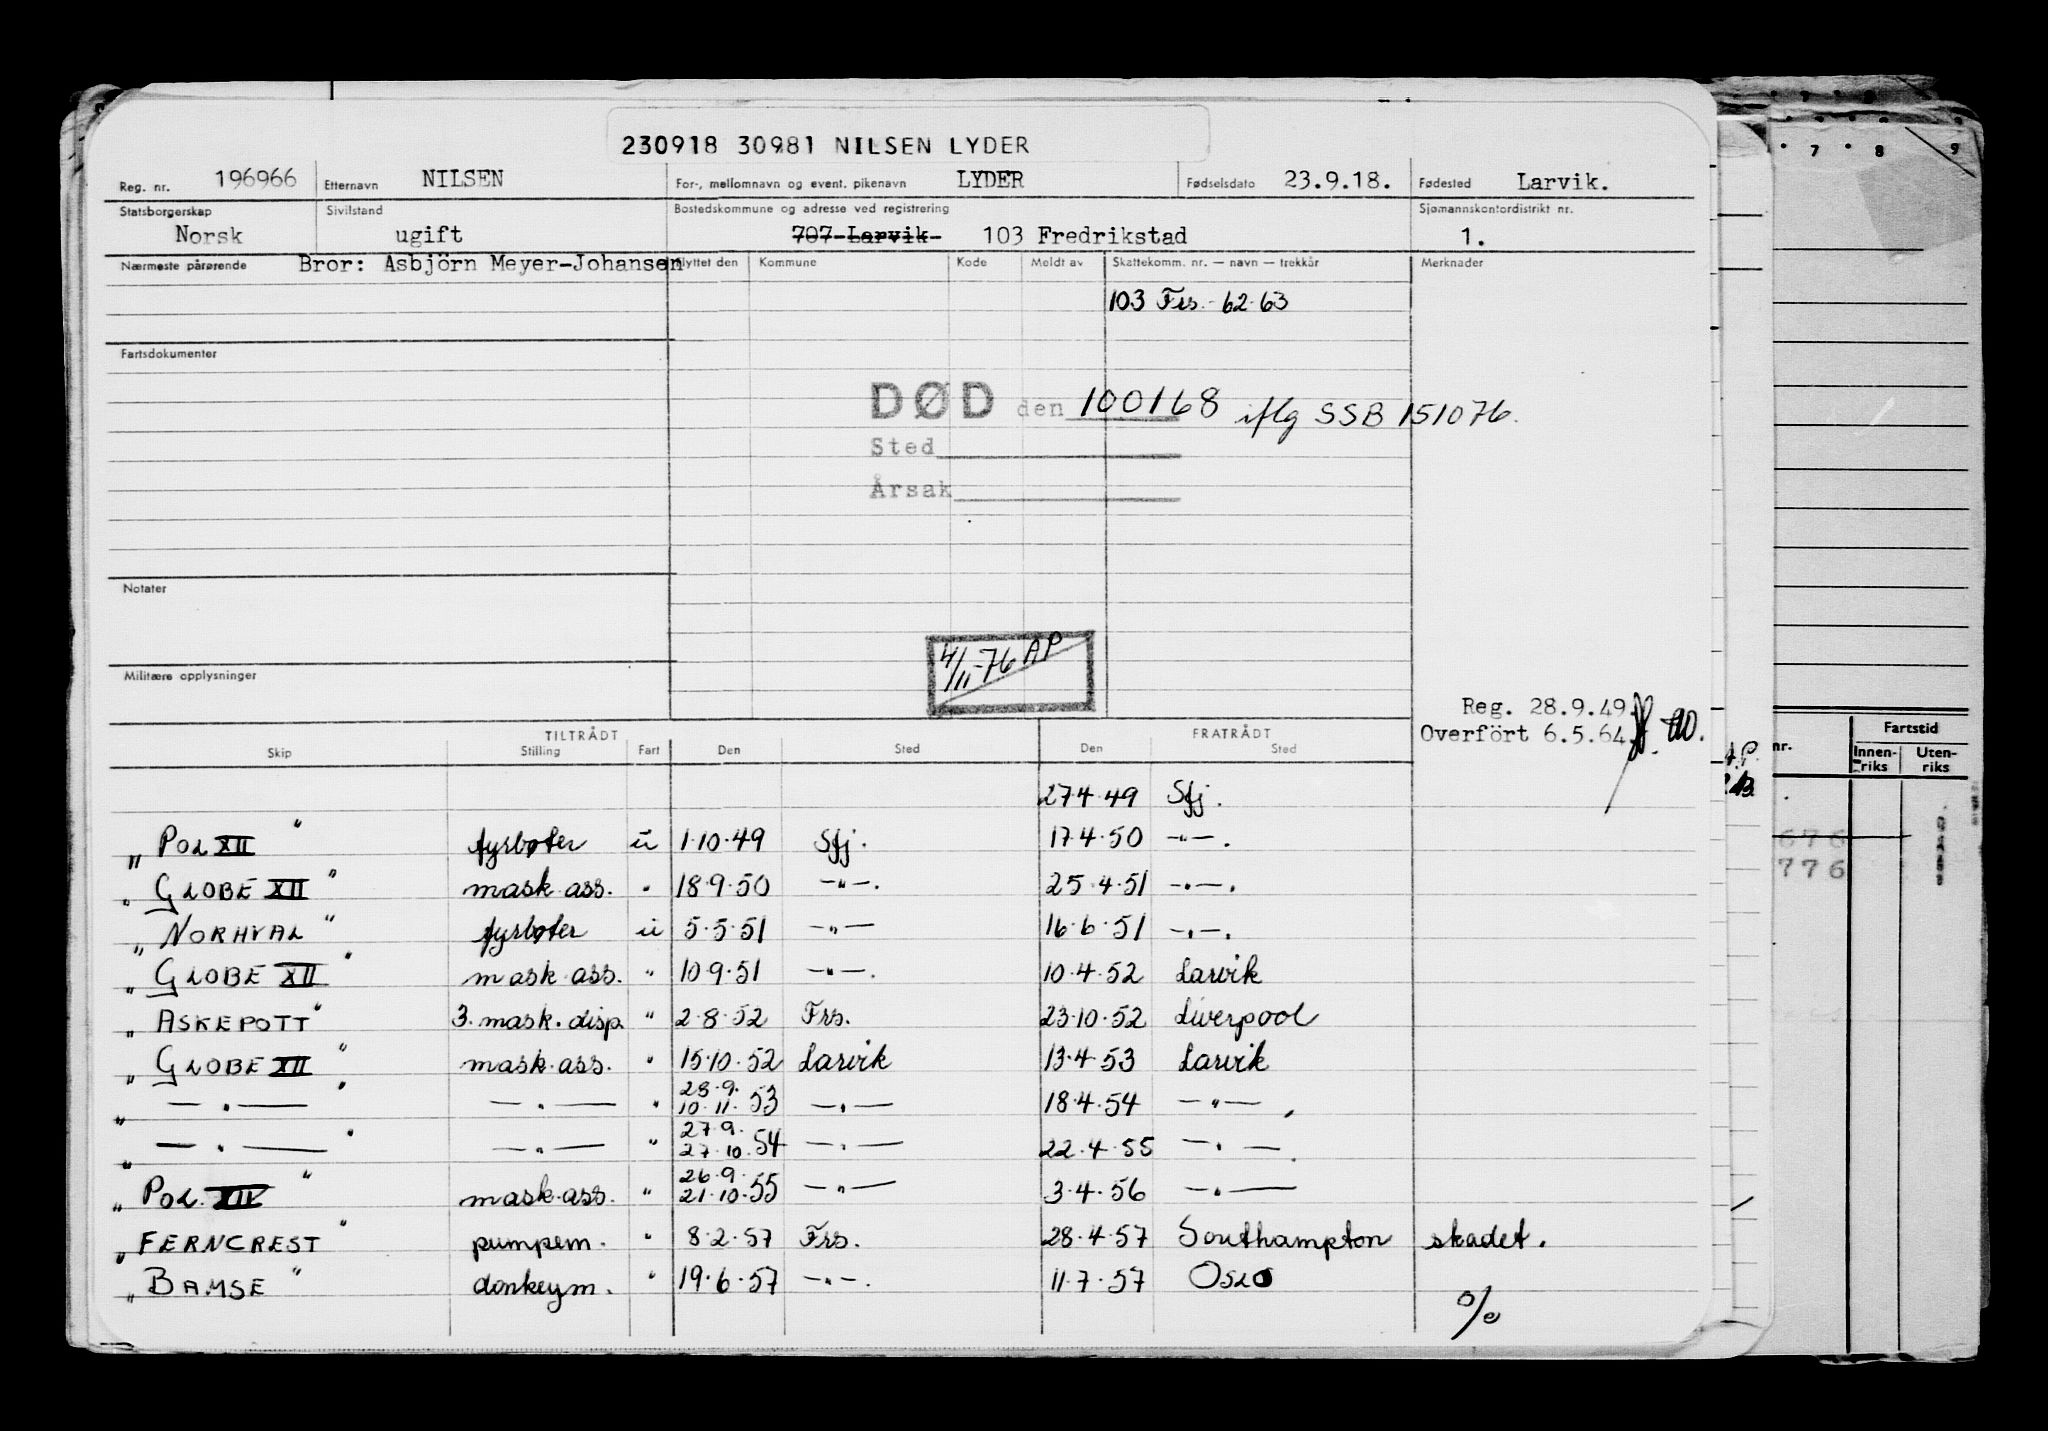 230918 30981 NILSEN LYDER
Reg. nr. 196966 Etternavn NILSEN For-, mellomnavn og event. pikenavn LYDER Fødselsdato 23.9.18. Fødested Larvik.
Statsborgerskap Sivilstand Bostedskommune og adresse ved registrering Sjømannskontordistrikt nr.
Norsk ugift 707 Larvik 103 Fredrikstad 1.
Nærmeste pårørende Bror: Asbjörn Meyer-Johansen Flyttet den Kommune Kode Meldt av Skattekomm. nr. — navn — trekkår Merknader
103 Frs. - 62-63
Fartsdokumenter
DØD den 100168 iflg SSB 151076.
Sted
Årsak
Notater
4/11-76 AP
Militære opplysninger
Reg. 28.9.49.
Overfört 6.5.64.
TILTRÅDT FRATRÅDT
Skip Stilling Fart Den Sted Den Sted
27.4.49 Sfj.
„ POL XII " fyrbøter ü 1.10.49 Sfj. 17.4.50 —"—.
„ GLOBE XII " mask.ass. " 18.9.50 —"—. 25.4.51 —"—.
„ NORHVAL " fyrbøter ü 5.5.51 —"— 16.6.51 —"—.
„ GLOBE XII " mask.ass. " 10.9.51 —"—. 10.4.52 Larvik
„ ASKEPOTT " 3. mask. disp. " 2.8.52 Frs. 23.10.52 Liverpool
„ GLOBE XII " mask.ass. " 15.10.52 Larvik 13.4.53 Larvik
„ —"— " —"— " 28.9. 10.11.53 —"— 18.4.54 —"—
„ —"— " —"— " 27.9. 27.10.54 —"— 22.4.55 —"—.
„ POL. XIV " mask.ass. " 26.9. 21.10.55 —"— 3.4.56 —"—
„ FERNCREST " pumpem. " 8.2.57 Frs. 28.4.57 Southampton skadet.
„ BAMSE " donkeym. " 19.6.57 —"—. 11.7.57 OSLO
%
7 8 9
nr. Fartstid
Innen-riks Uten-riks
676
776